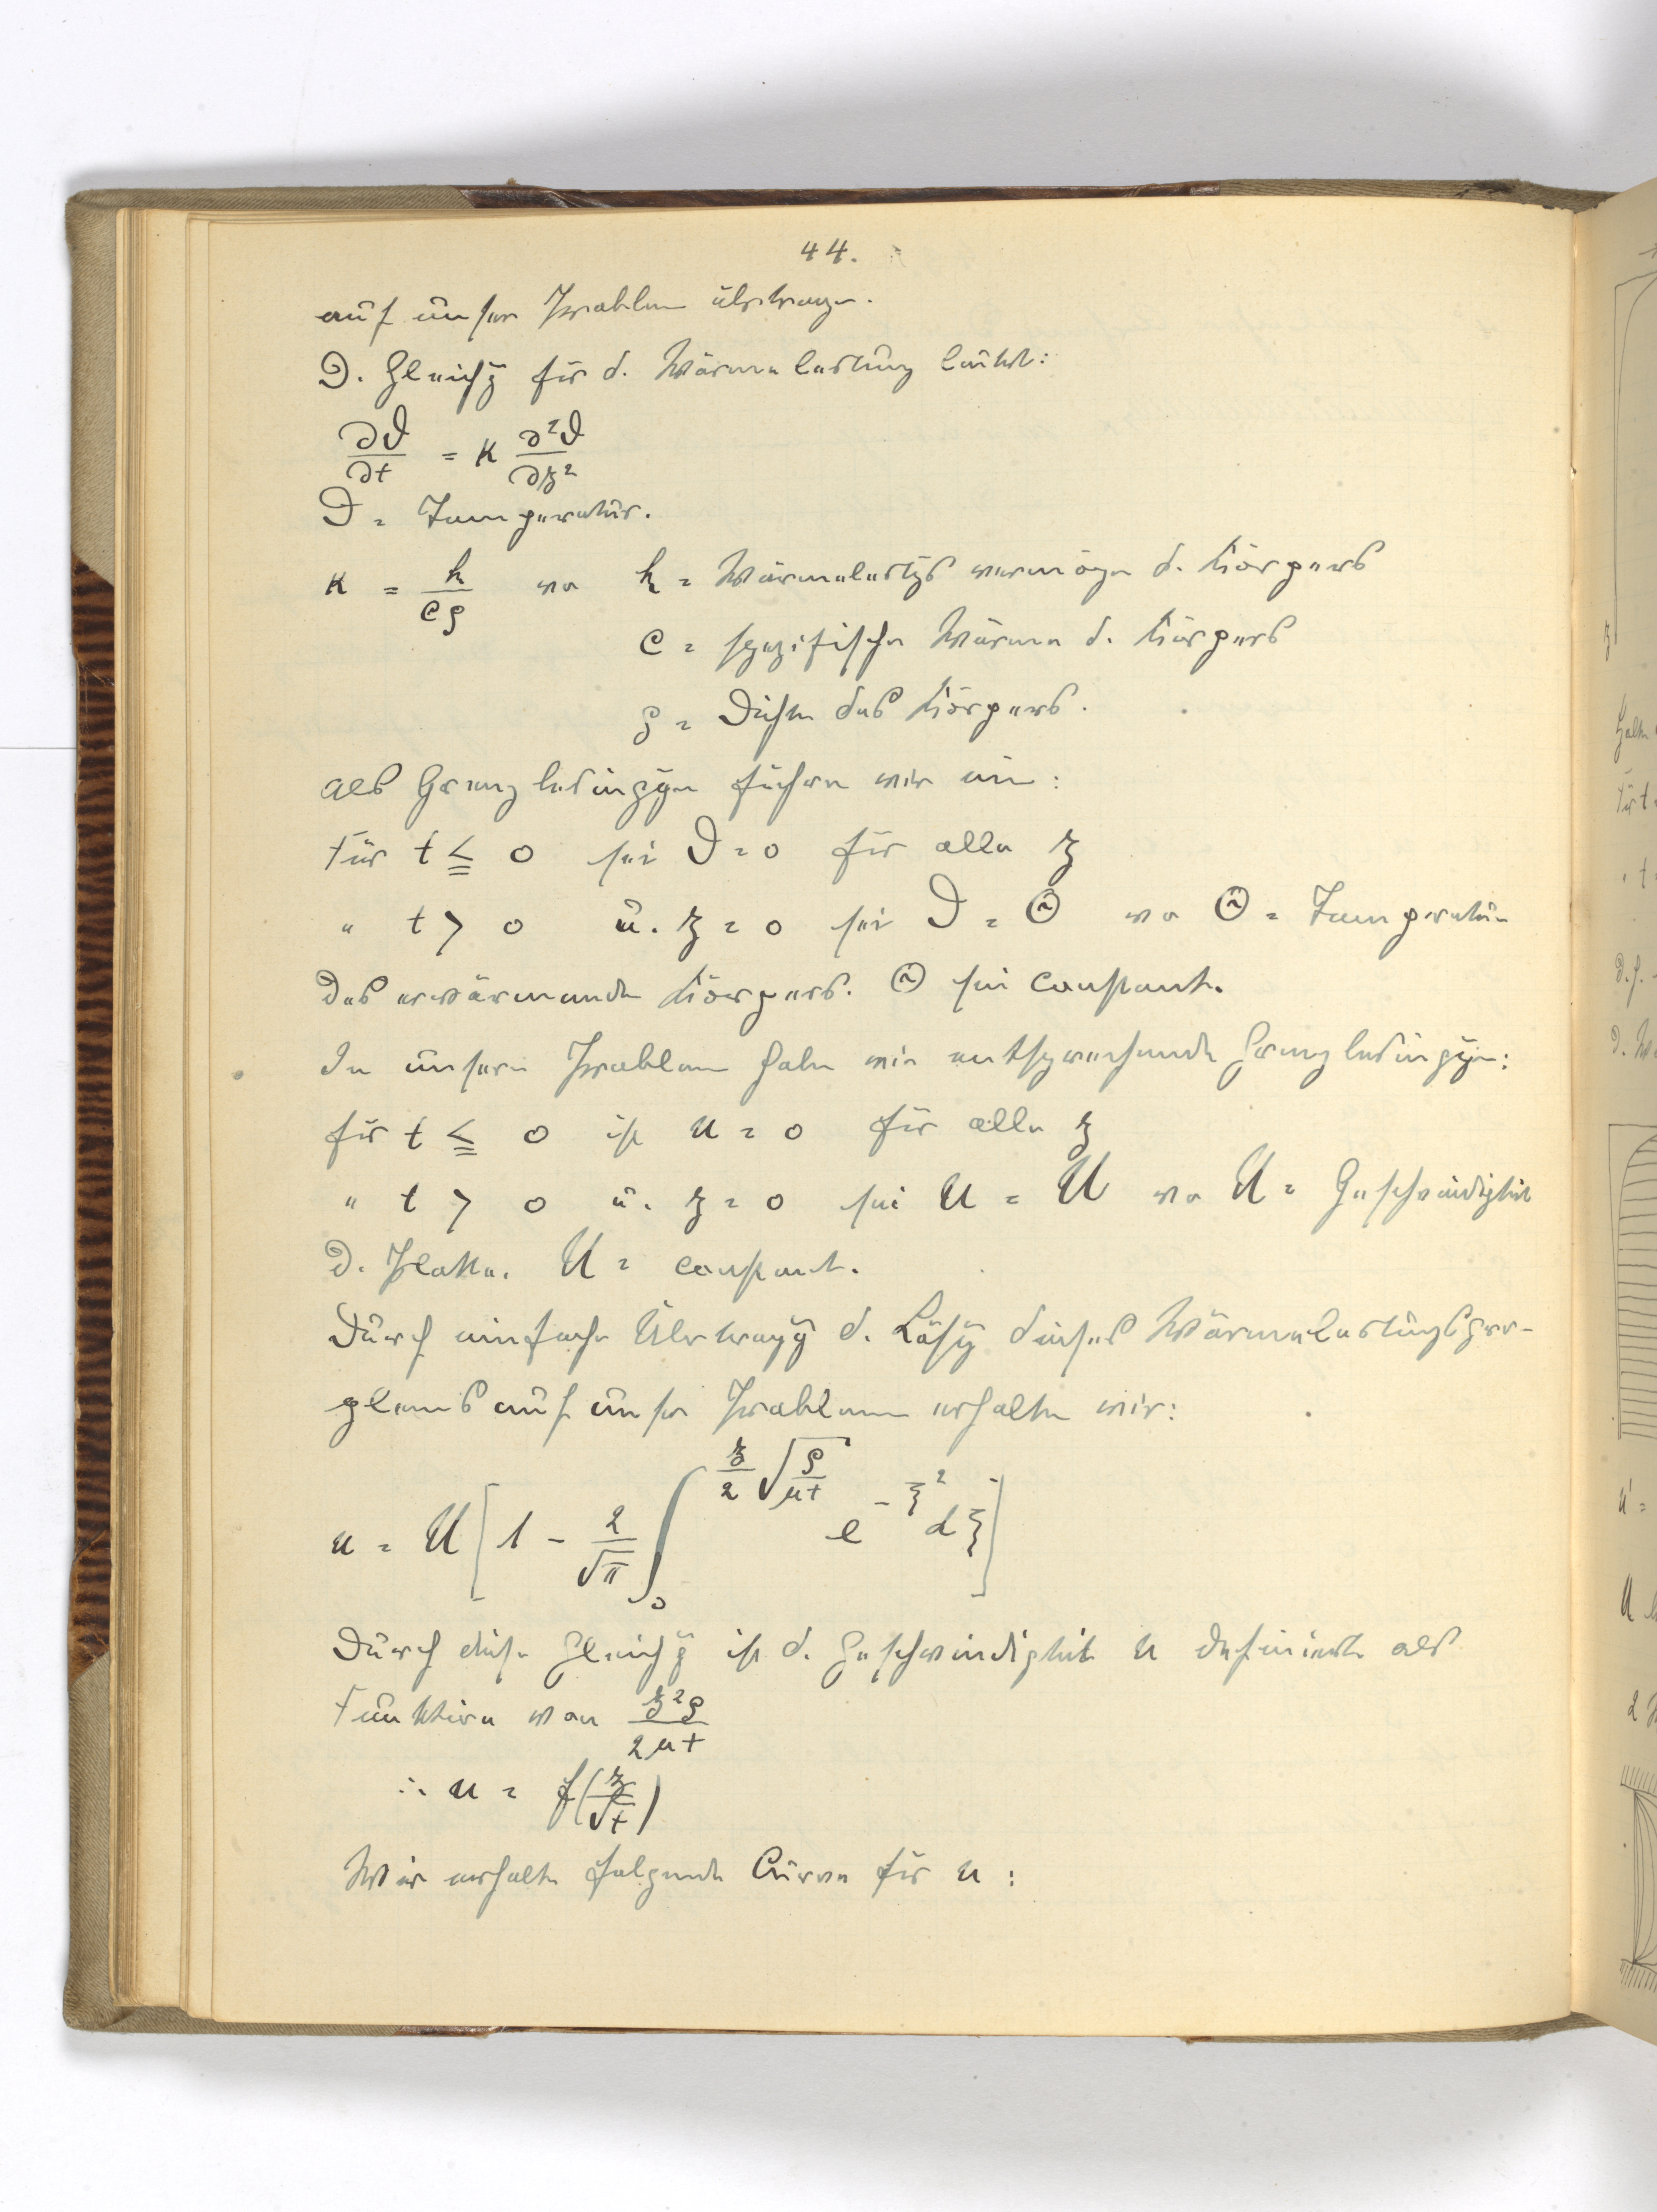 44.
auf unser Problem übertragen.
D. Gleichg für d. Wärmeleitung lautet:
∂ϑ/∂t = κ ∂²ϑ/∂z²
ϑ = Temperatur.
κ = k/cρ wo k = Wärmeleitgs vermögen d. Körpers
c = spezifische Wärme d. Körpers
ρ = Dichte des Körpers.
Als Grenzbedinggen führen wir ein:
Für t ≦ 0 sei ϑ = 0 für alle z
" t > 0 u. z = 0 sei ϑ = Θ wo Θ = Temperatur
des erwärmenden Körpers. Θ sei constant.
In unserm Problem haben wir entsprechende Grenzbedinggen:
für t ≦ 0 ist u = 0 für alle z
" t > 0 u. z = 0 sei u = U wo U = Geschwindigkeit
d. Platte. U = constant.
Durch einfache Übertragg d. Lösg dieses Wärmeleitungspro-
blems auf unser Problem erhalten wir:
u = U [1 - 2/√π ∫₀^(z/2 √(ρ/μt)) e^(-ξ²) dξ]
Durch diese Gleichg ist d. Geschwindigkeit u definiert als
Funktion von z²ρ/2μt
∴ u = f(z/√t)
Wir erhalten folgende Curve für u: